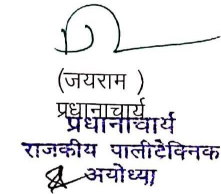 (जयराम )
प्रधानाचार्य
प्रधानाचार्य
राजकीय पालीटेक्निक
अयोध्या